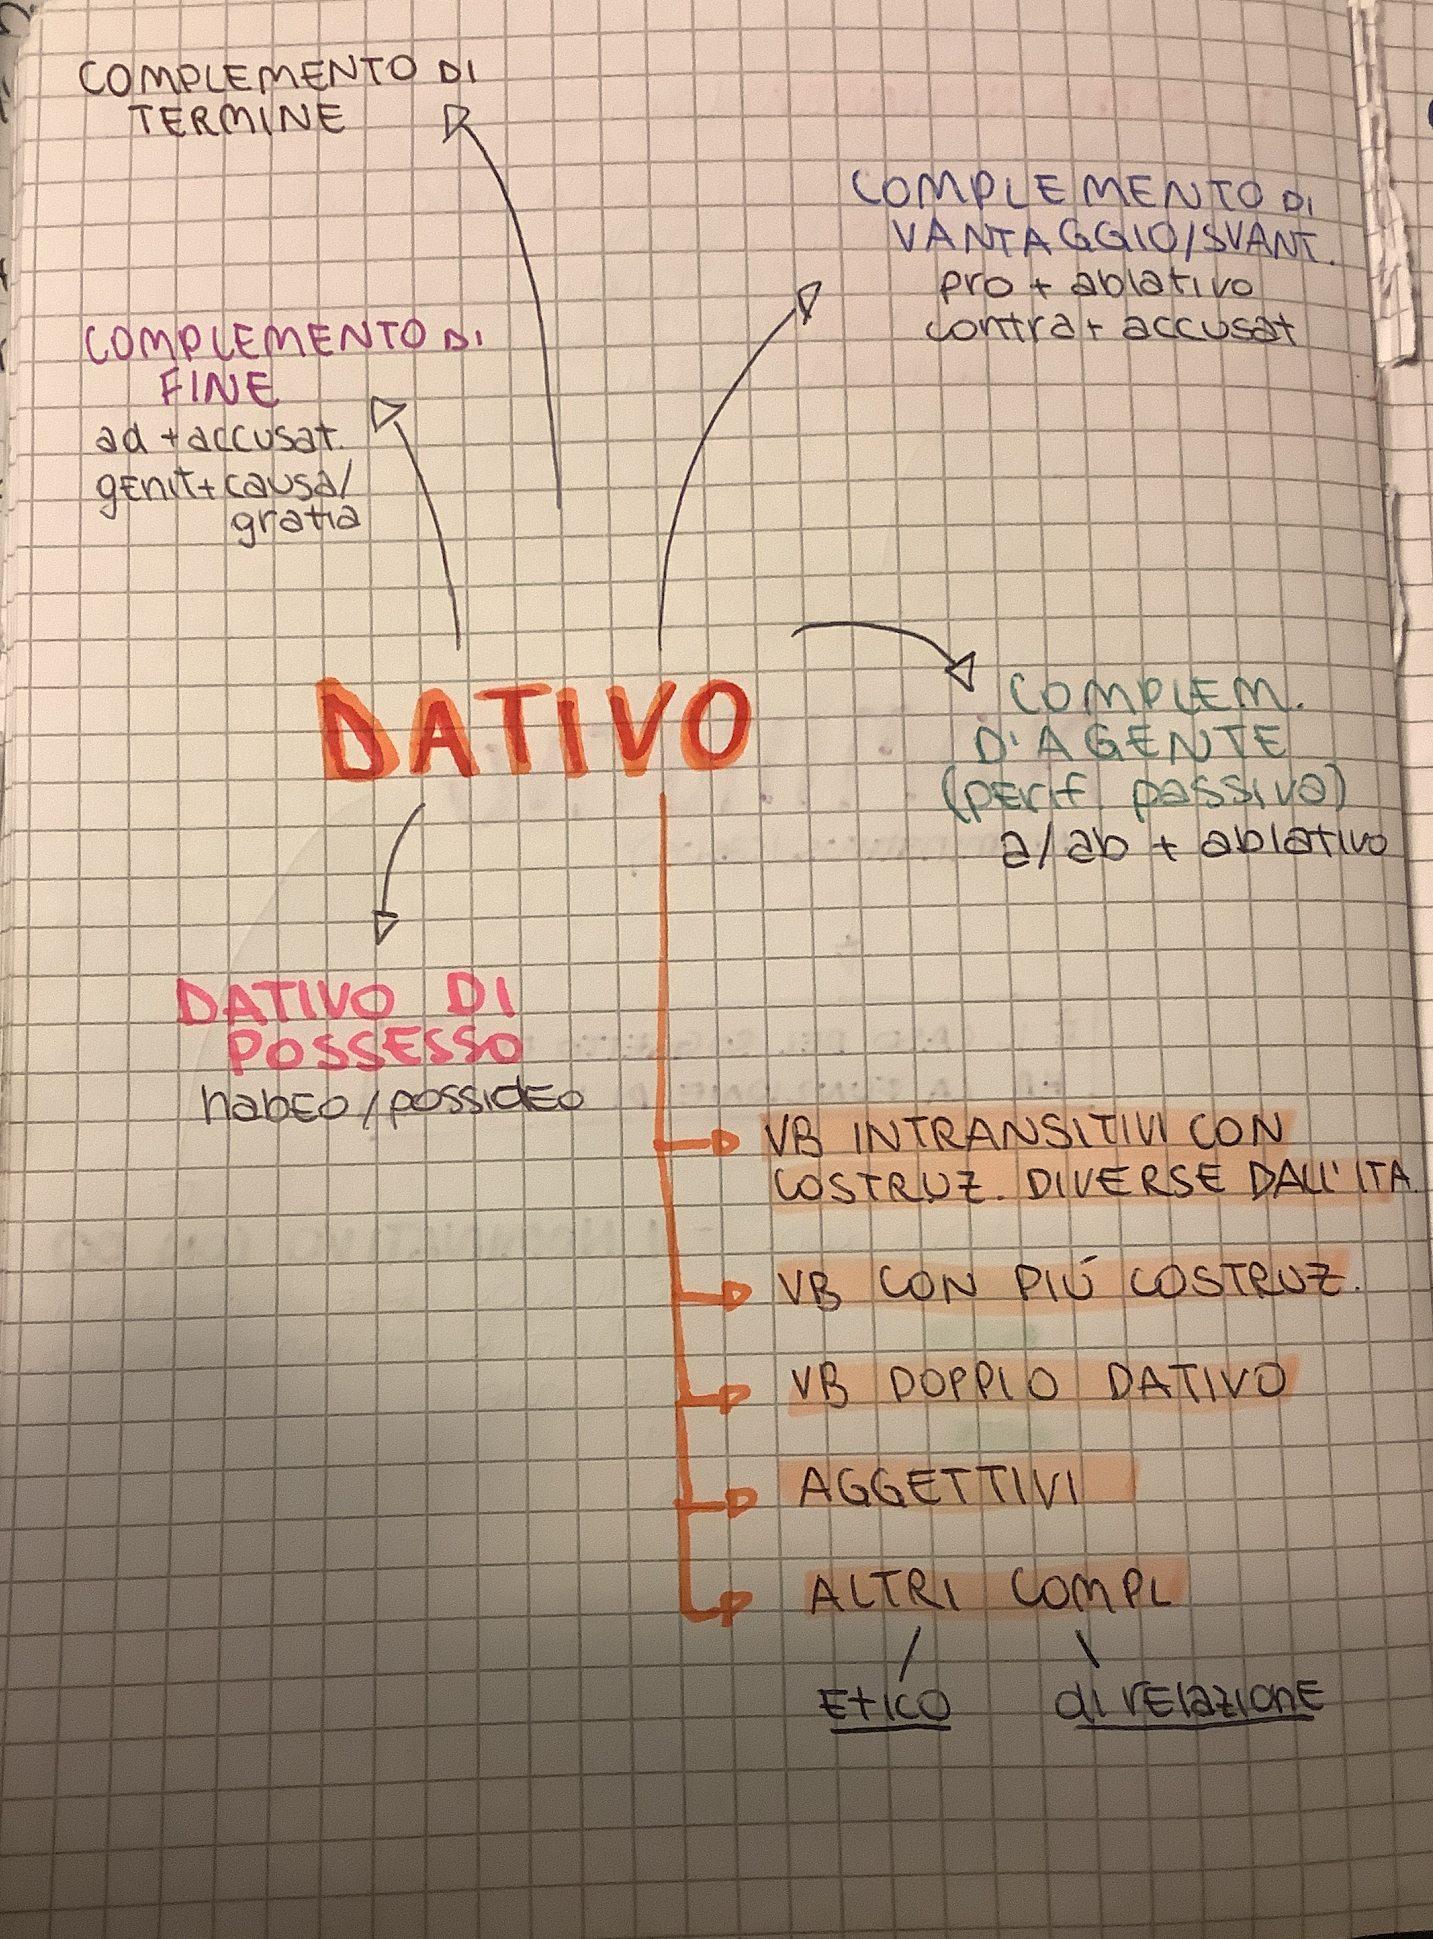 COMPLEMENTO DI
TERMINE
COMPLEMENTO DI
VANTAGGIO/SVANT.
pro + ablativo
contra + accusat
COMPLEMENTO DI
FINE
ad + accusat.
genit + causa/
gratia
DATIVO
COMPLEM.
D'AGENTE
(perif. passiva)
a/ab + ablativo
DATIVO DI
POSSESSO
habeo/possideo
VB INTRANSITIVI CON
COSTRUZ. DIVERSE DALL'ITA.
VB CON PIÚ COSTRUZ.
VB DOPPIO DATIVO
AGGETTIVI
ALTRI COMPL
Etico di relazione